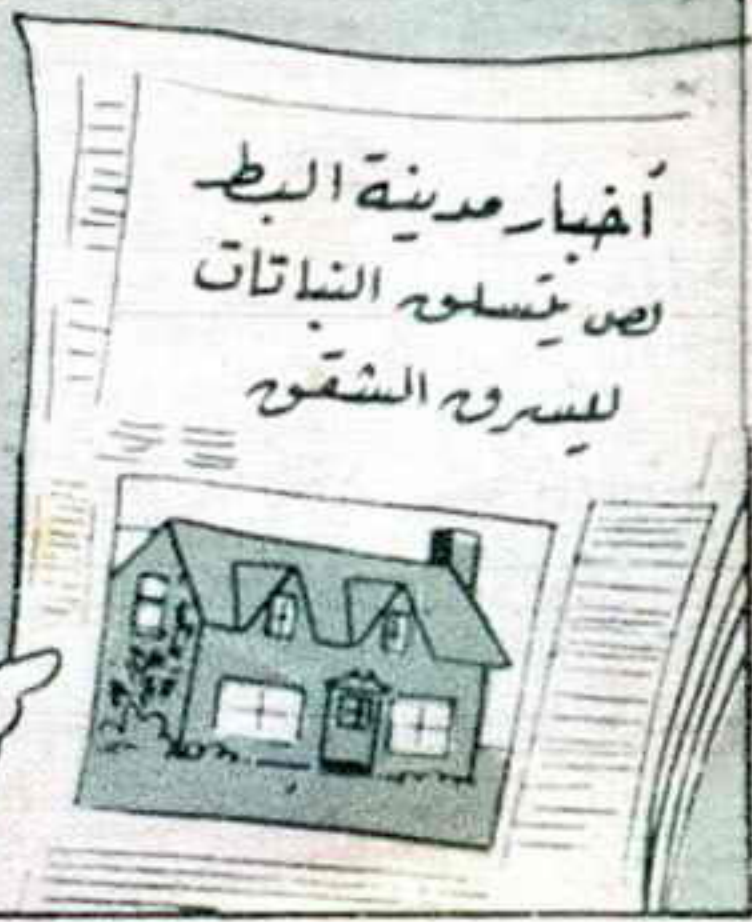 أخبار مدينة البط
لص يتسلق النباتات
ليسرق الشقق